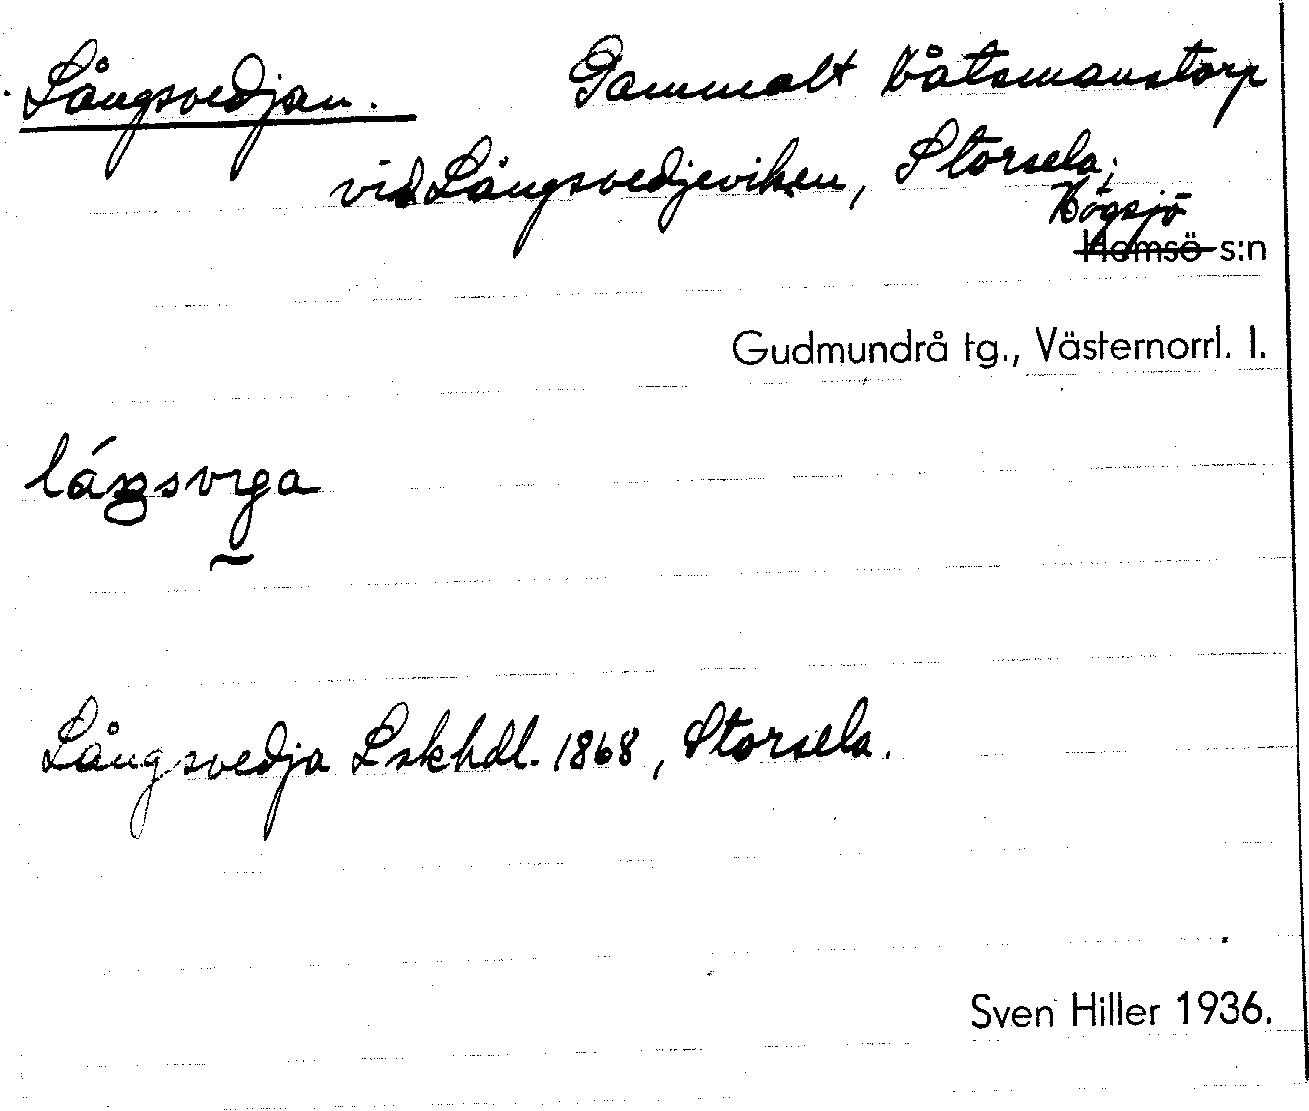 Långsvedjan. Gammalt båtsmanstorp
vid Långsvedjeviken, Storsela,
Högsjö
Hemsö s:n
Gudmundrå tg., Västernorrl. l.
Långsvedja Lskhdl. 1868, Storsela.
Sven Hiller 1936.